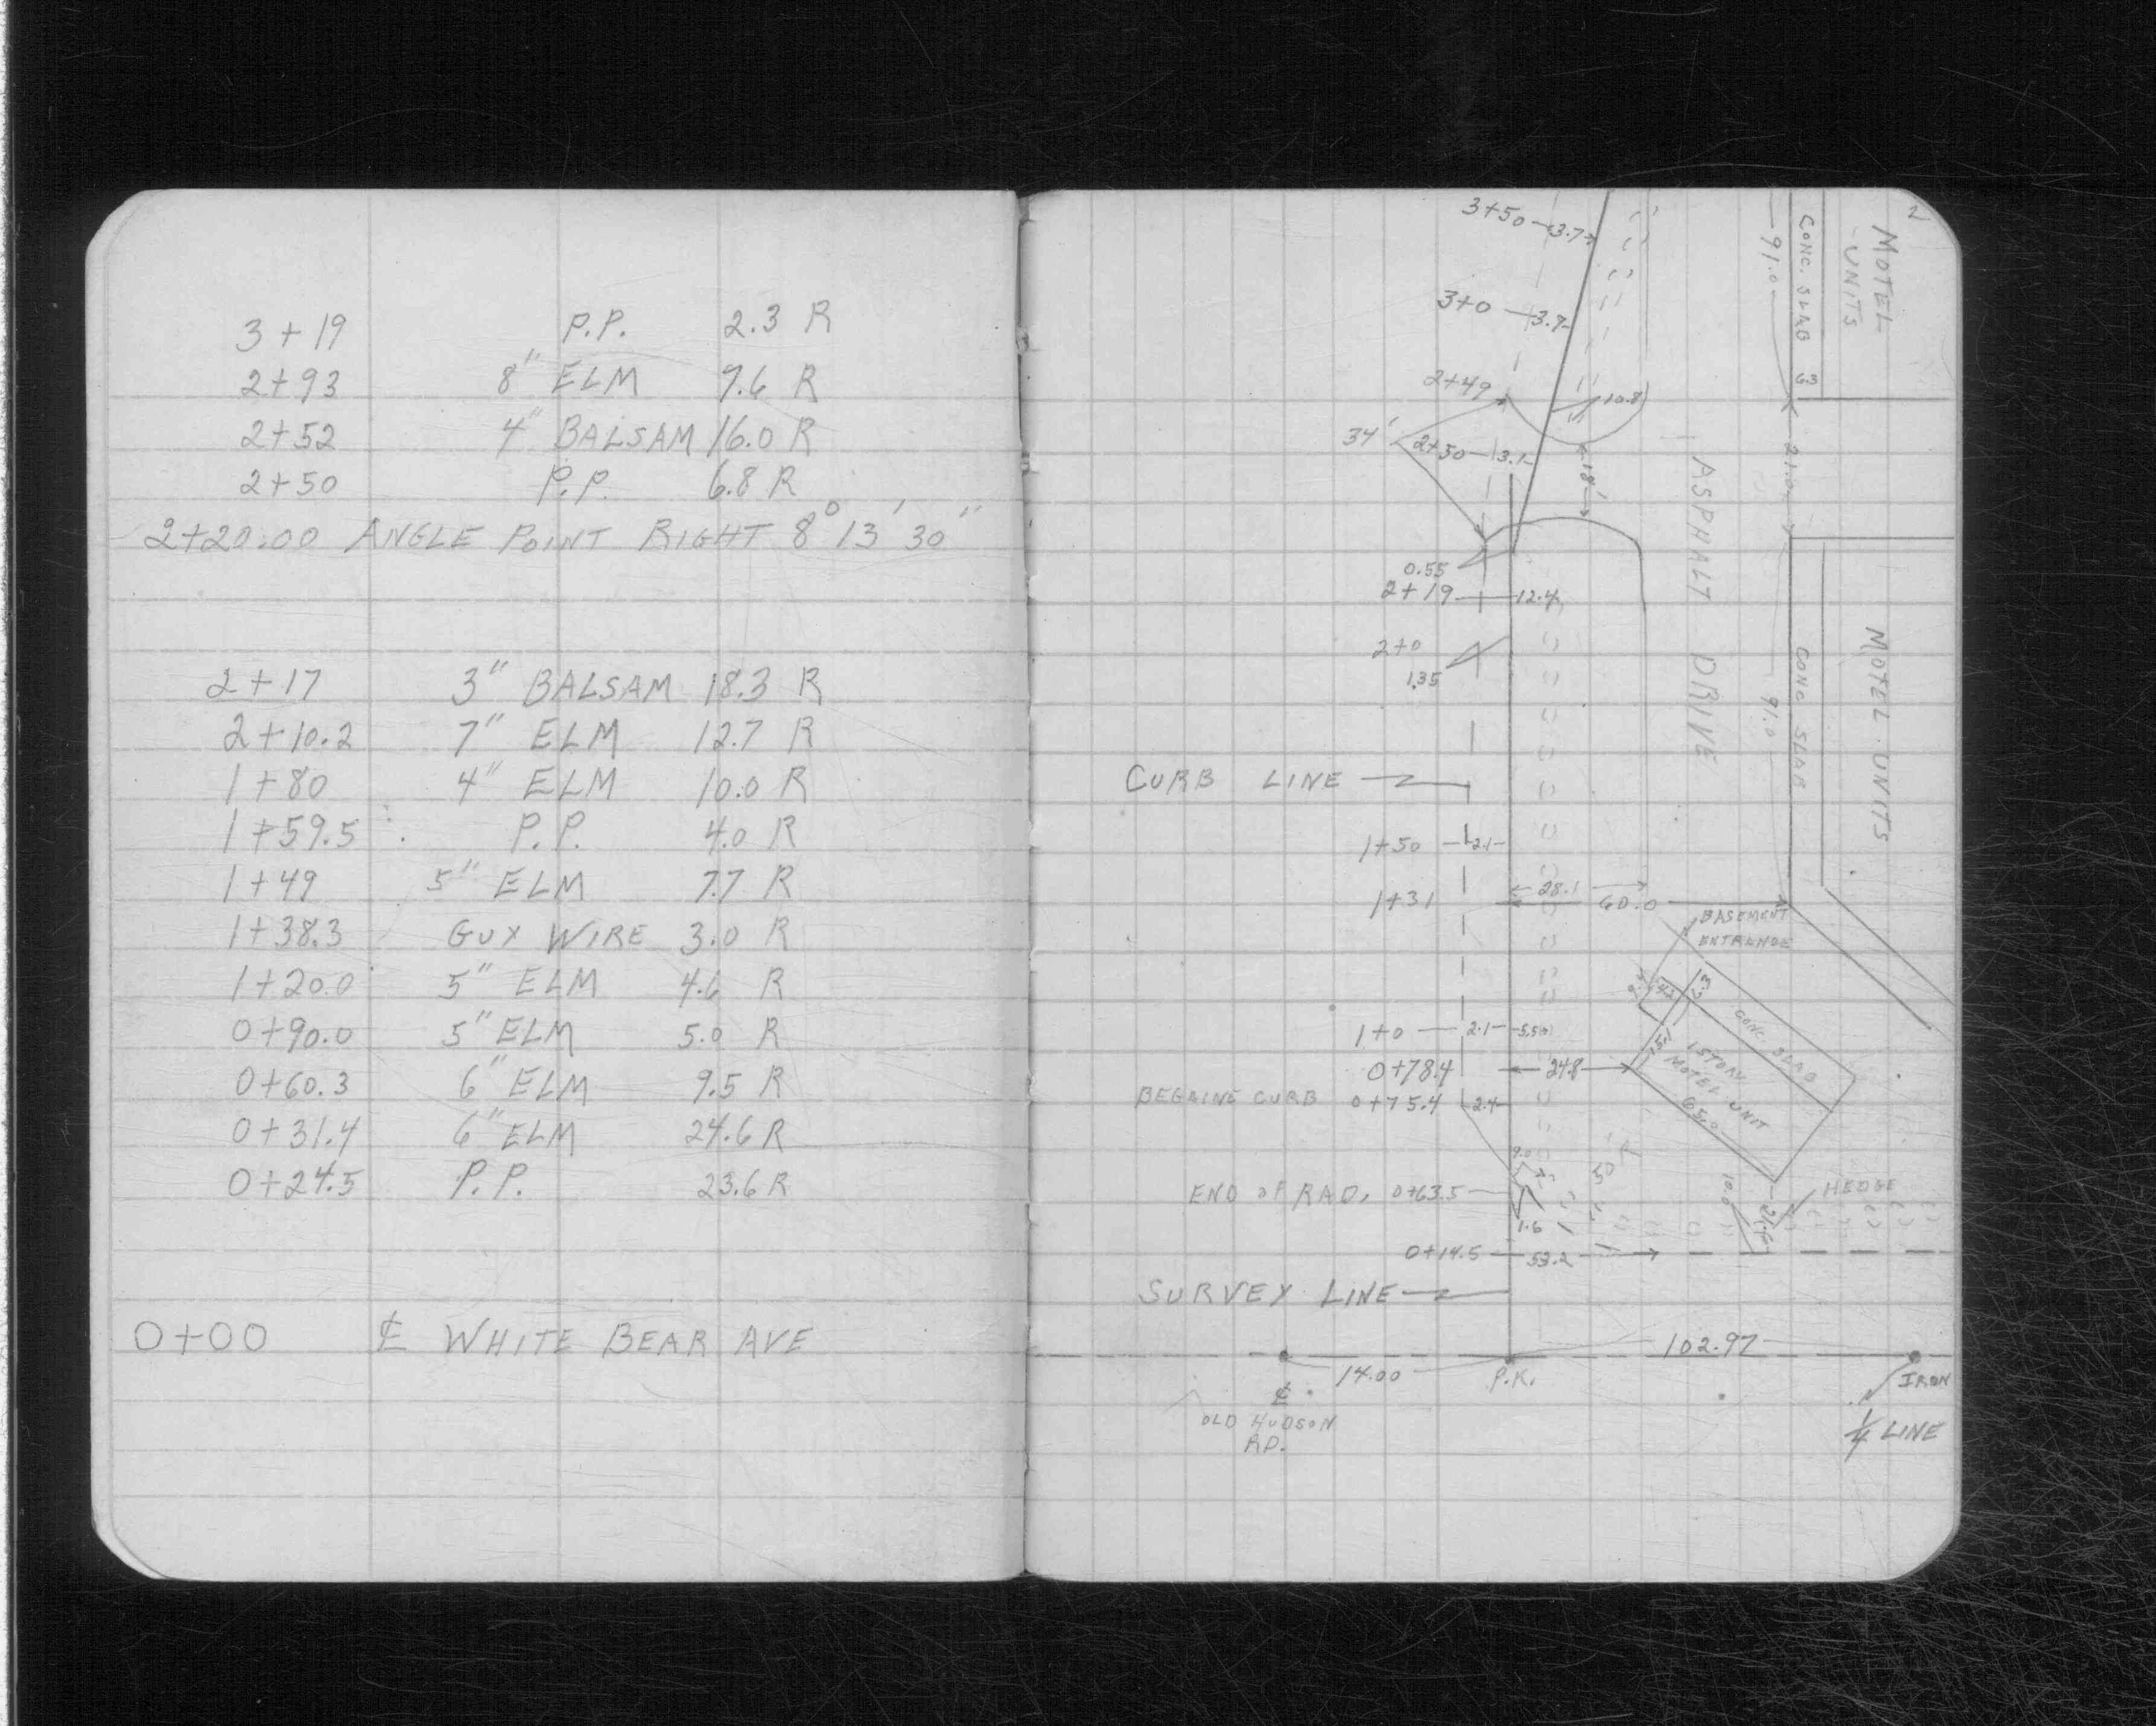 3+19 P.P. 2.3 R
2+93 8" ELM 7.6 R
2+52 4" BALSAM 16.0 R
2+50 P.P. 6.8 R
2+20.00 ANGLE POINT RIGHT 8° 13' 30"
2+17 3" BALSAM 18.3 R
2+10.2 7" ELM 12.7 R
1+80 4" ELM 10.0 R
1+59.5 P.P. 4.0 R
1+49 5" ELM 7.7 R
1+38.3 GUY WIRE 3.0 R
1+20.0 5" ELM 4.6 R
0+90.0 5" ELM 5.0 R
0+60.3 6" ELM 9.5 R
0+31.4 6" ELM 24.6 R
0+24.5 P.P. 23.6 R
0+00 ℄ WHITE BEAR AVE
2
3+50 3.7
3+0 3.7
2+49
10.8
34'
2+50 3.1
18'
0.55
2+19 12.4
2+0
1.35
CURB LINE
1+50 2.1
1+31 28.1 60.0
1+0 2.1 5.5
0+78.4 24.8
BEGAINE CURB 0+75.4 2.4
9.0
50' R
END OF RAD. 0+63.5
1.6
0+14.5 53.2
SURVEY LINE
102.97
14.00 P.K.
℄
OLD HUDSON
RD.
IRON
1/4 LINE
MOTEL
UNITS
CONC. SLAB
6.3
91.0
21.0
ASPHALT DRIVE
MOTEL UNITS
CONC SLAB
91.0
BASEMENT
ENTRENCE
CONC. SLAB
1 STORY
MOTEL UNIT
HEDGE
10.0